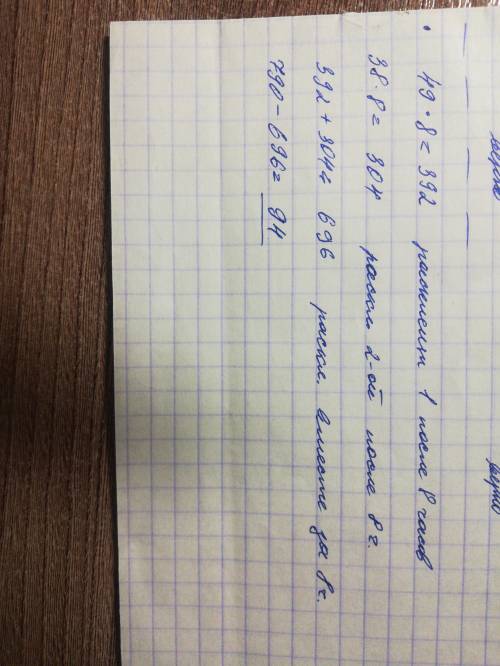 49 · 8 = 392 расклеит 1 после 8 часов
38 · 8 = 304 раскл. 2-ой после 8 ч.
392 + 304 = 696 раскл. вместе за 8 ч.
790 - 696 = 94